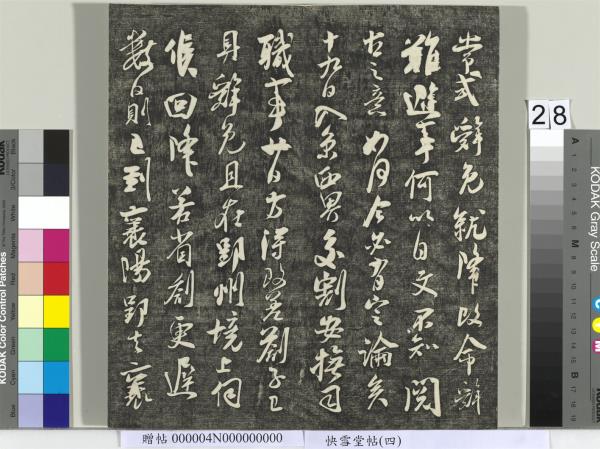 嘗式辭免就降改命辭
難避事何以自文不知閤
之意如何今必有定論矣
十九日入京西界交割安撫司
職事廿日方得改差劄子已
具辭免且在郢州境上伺
候回降若省劄更遲
數日則已到襄陽郢去襄
28
KODAK Color Control Patches
Blue Cyan Green Yellow Red Magenta White 3/Color Black
KODAK Gray Scale
A 1 2 3 4 5 6 M 8 9 10 11 12 13 14 15 B 17 18 19
C Y M
贈帖 000004N000000000 快雪堂帖(四)